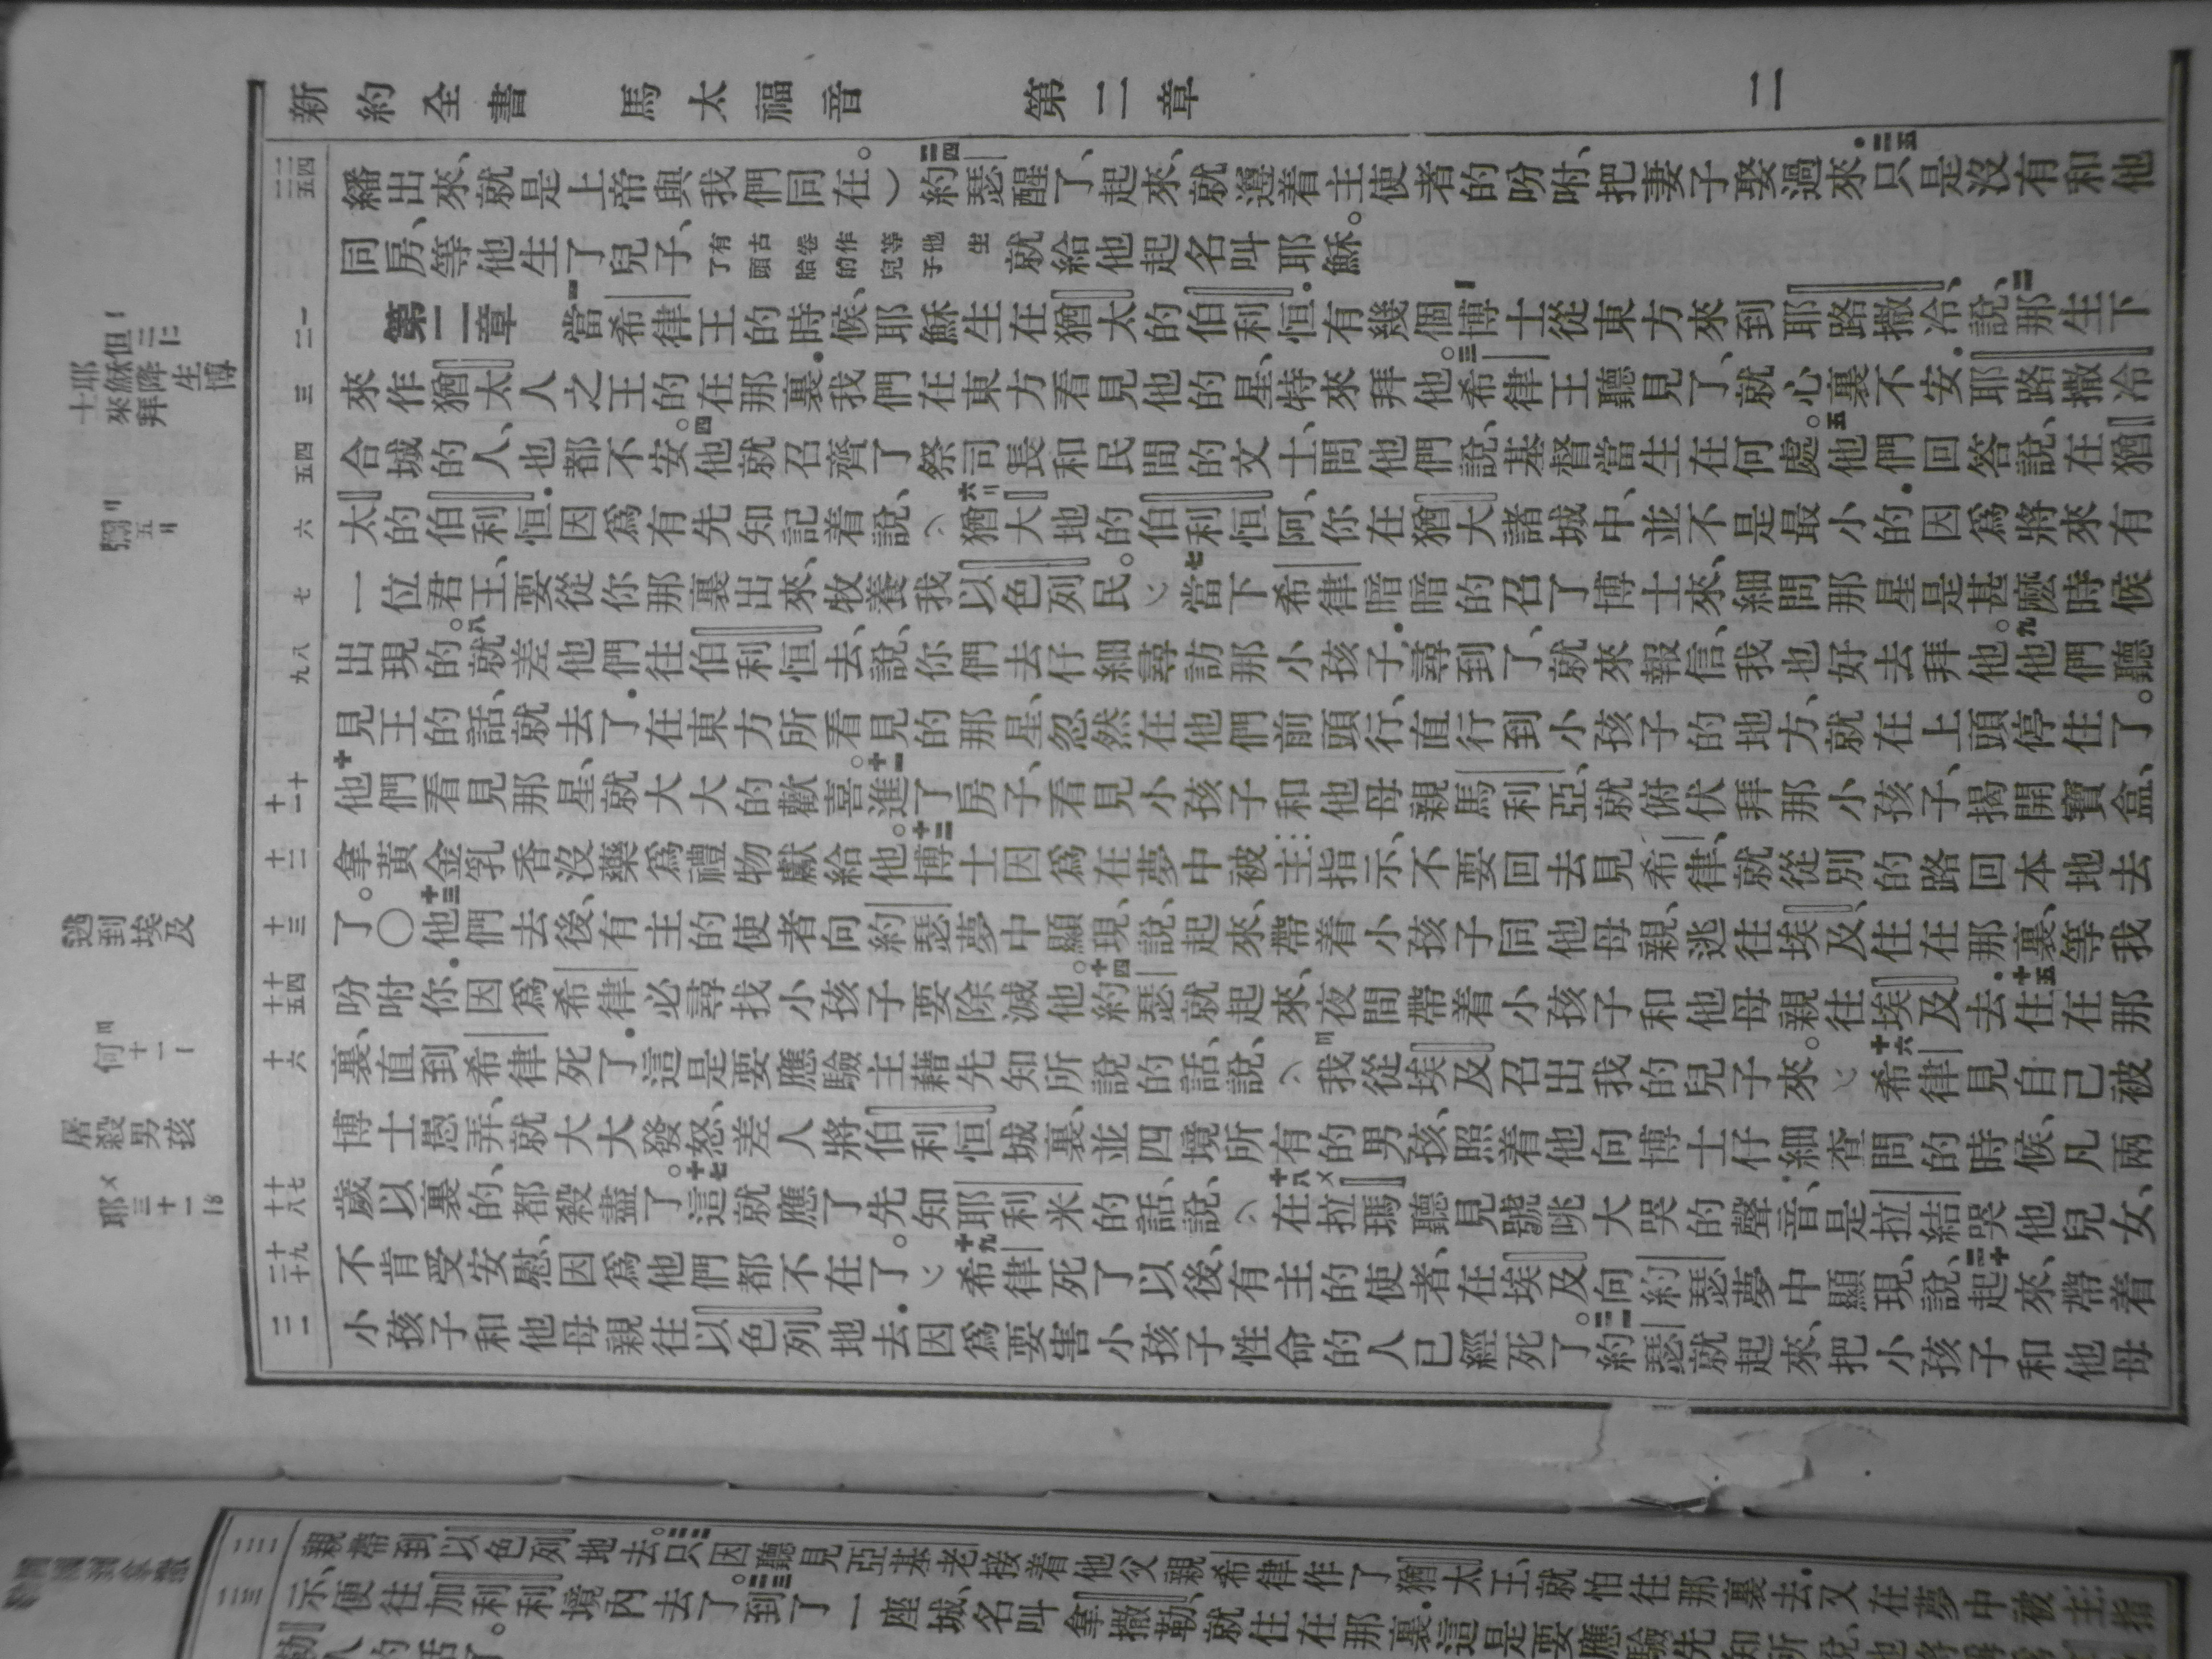 新約全書 馬太福音 第二章 二
繙出來、就是上帝與我們同在。）二四約瑟醒了、起來、就遵着主使者的吩咐、把妻子娶過來．二五只是沒有和他
同房、等他生了兒子、有古卷作等他生了頭胎的兒子就給他起名叫耶穌。
第二章 一當希律王的時候、耶穌生在猶太的伯利恒．有幾個博士從東方來到耶路撒冷、說、二那生下
來作猶太人之王的在那裏．我們在東方看見他的星、特來拜他。三希律王聽見了、就心裏不安．耶路撒冷
合城的人、也都不安。四他就召齊了祭司長和民間的文士、問他們說、基督當生在何處。五他們回答說、在猶
太的伯利恒．因爲有先知記着說、六猶大地的伯利恒阿、你在猶大諸城中、並不是最小的．因爲將來有
一位君王、要從你那裏出來、牧養我以色列民。七當下希律暗暗的召了博士來、細問那星是甚麽時候
出現的。八就差他們往伯利恒去、說、你們去仔細尋訪那小孩子．尋到了、就來報信、我也好去拜他。九他們聽
見王的話、就去了．在東方所看見的那星、忽然在他們前頭行、直行到小孩子的地方、就在上頭停住了。
十他們看見那星、就大大的歡喜。十一進了房子、看見小孩子和他母親馬利亞、就俯伏拜那小孩子、揭開寶盒、
拿黃金乳香沒藥爲禮物獻給他。十二博士因爲在夢中被主指示、不要回去見希律、就從別的路回本地去
了。〇十三他們去後、有主的使者向約瑟夢中顯現、說、起來、帶着小孩子同他母親、逃往埃及、住在那裏、等我
吩咐你．因爲希律必尋找小孩子要除滅他。十四約瑟就起來、夜間帶着小孩子和他母親往埃及去．十五住在那
裏、直到希律死了．這是要應驗主藉先知所說的話、說、我從埃及召出我的兒子來。十六希律見自己被
博士愚弄、就大大發怒、差人將伯利恒城裏、並四境所有的男孩、照着他向博士仔細查問的時候、凡兩
歲以裏的、都殺盡了。十七這就應了先知耶利米的話、說、十八在拉瑪聽見號咷大哭的聲音、是拉結哭他兒女、
不肯受安慰、因爲他們都不在了。十九希律死了以後、有主的使者、在埃及向約瑟夢中顯現、說、二十起來、帶着
小孩子和他母親往以色列地去．因爲要害小孩子性命的人已經死了。二一約瑟就起來、把小孩子和他母
耶穌降生
博士來拜
但二
彌五
逃到埃及
何十一
屠殺男孩
耶三十一
親帶到以色列地去。二二只因聽見亞基老接着他父親希律作了猶太王、就怕往那裏去．又在夢中被主指
示、便往加利利境內去了。二三到了一座城、名叫拿撒勒、就住在那裏．這是要應驗先知所說、